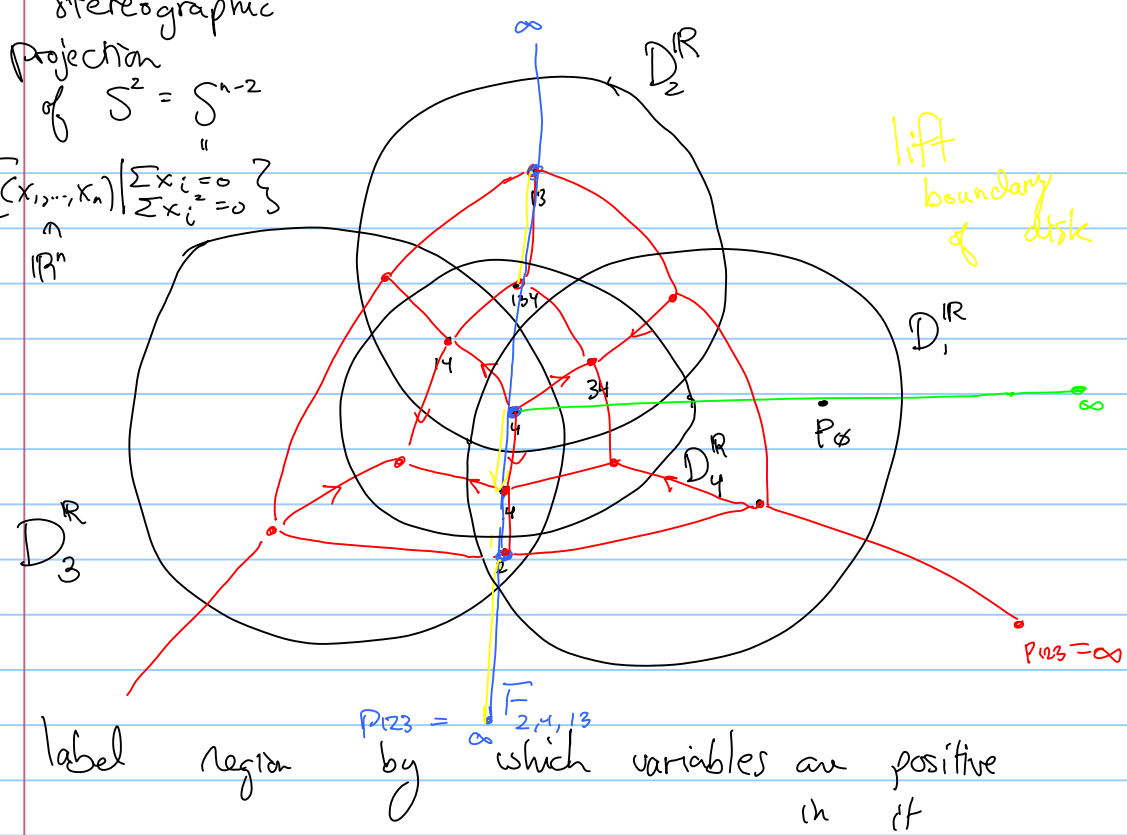 stereographic
projection
of S² = Sⁿ⁻²
"
{(x₁,...,xₙ) | Σxᵢ=0
Σxᵢ²=0}
∩
ℝⁿ
∞
D₂^ℝ
lift
boundary
of disk
13
134
D₁^ℝ
14
34
∞
4
P∅
D₄^ℝ
4
D₃^ℝ
2
P₁₂₃=∞
P₁₂₃ = ∞
F₂,₄,₁₃
label region by which variables are positive
in it